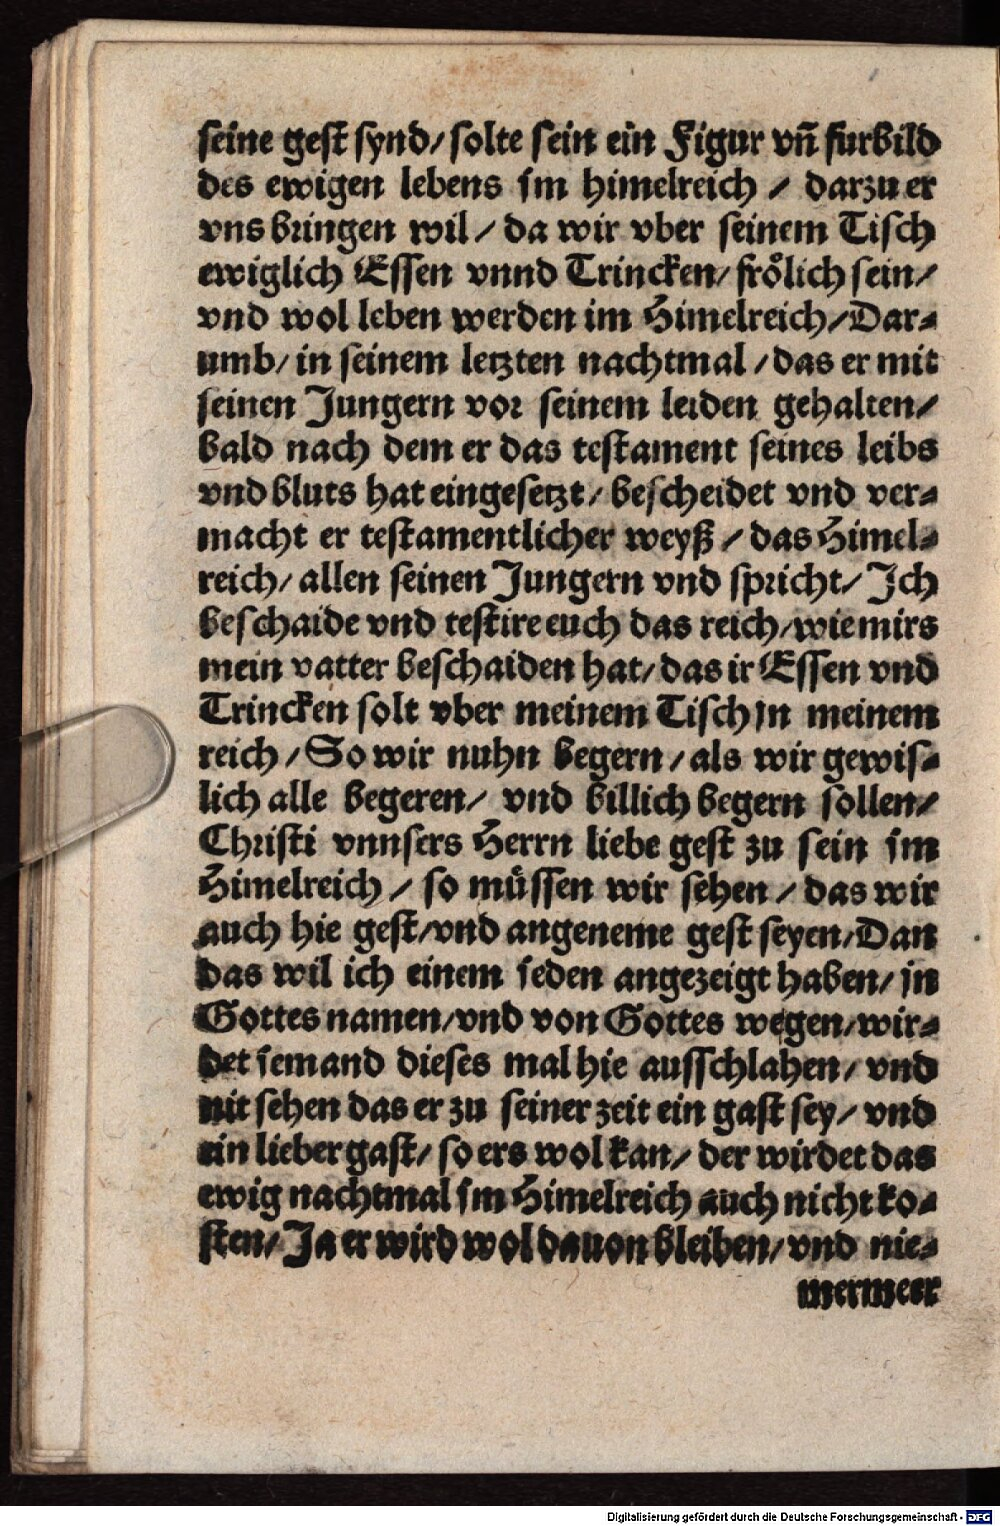 seine gest synd/ solte sein ein Figur vñ furbild
des ewigen lebens im himelreich / darzu er
vns bringen wil/ da wir vber seinem Tisch
ewiglich Essen vnnd Trincken/ froͤlich sein/
vnd wol leben werden im Himelreich/ Dar-
umb/ in seinem letzten nachtmal / das er mit
seinen Jungern vor seinem leiden gehalten/
bald nach dem er das testament seines leibs
vnd bluts hat eingesetzt/ bescheidet vnd ver-
macht er testamentlicher weyß / das Himel-
reich/ allen seinen Jungern vnd spricht/ Jch
beschaide vnd testire euch das reich/ wie mirs
mein vatter beschaiden hat/ das ir Essen vnd
Trincken solt vber meinem Tisch jn meinem
reich / So wir nuhn begern / als wir gewis-
lich alle begeren/ vnd billich begern sollen/
Christi vnnsers Herrn liebe gest zu sein im
Himelreich / so muͤssen wir sehen / das wir
auch hie gest/ vnd angeneme gest seyen/ Dan
das wil ich einem jeden angezeigt haben/ jn
Gottes namen/ vnd von Gottes wegen/ wir-
det jemand dieses mal hie ausschlahen/ vnd
nit sehen das er zu seiner zeit ein gast sey/ vnd
ein lieber gast/ so ers wol kan/ der wirdet das
ewig nachtmal im Himelreich auch nicht ko-
sten/ Ja er wird wol dauon bleiben/ vnd nie-
mermeer
Digitalisierung gefördert durch die Deutsche Forschungsgemeinschaft - DFG